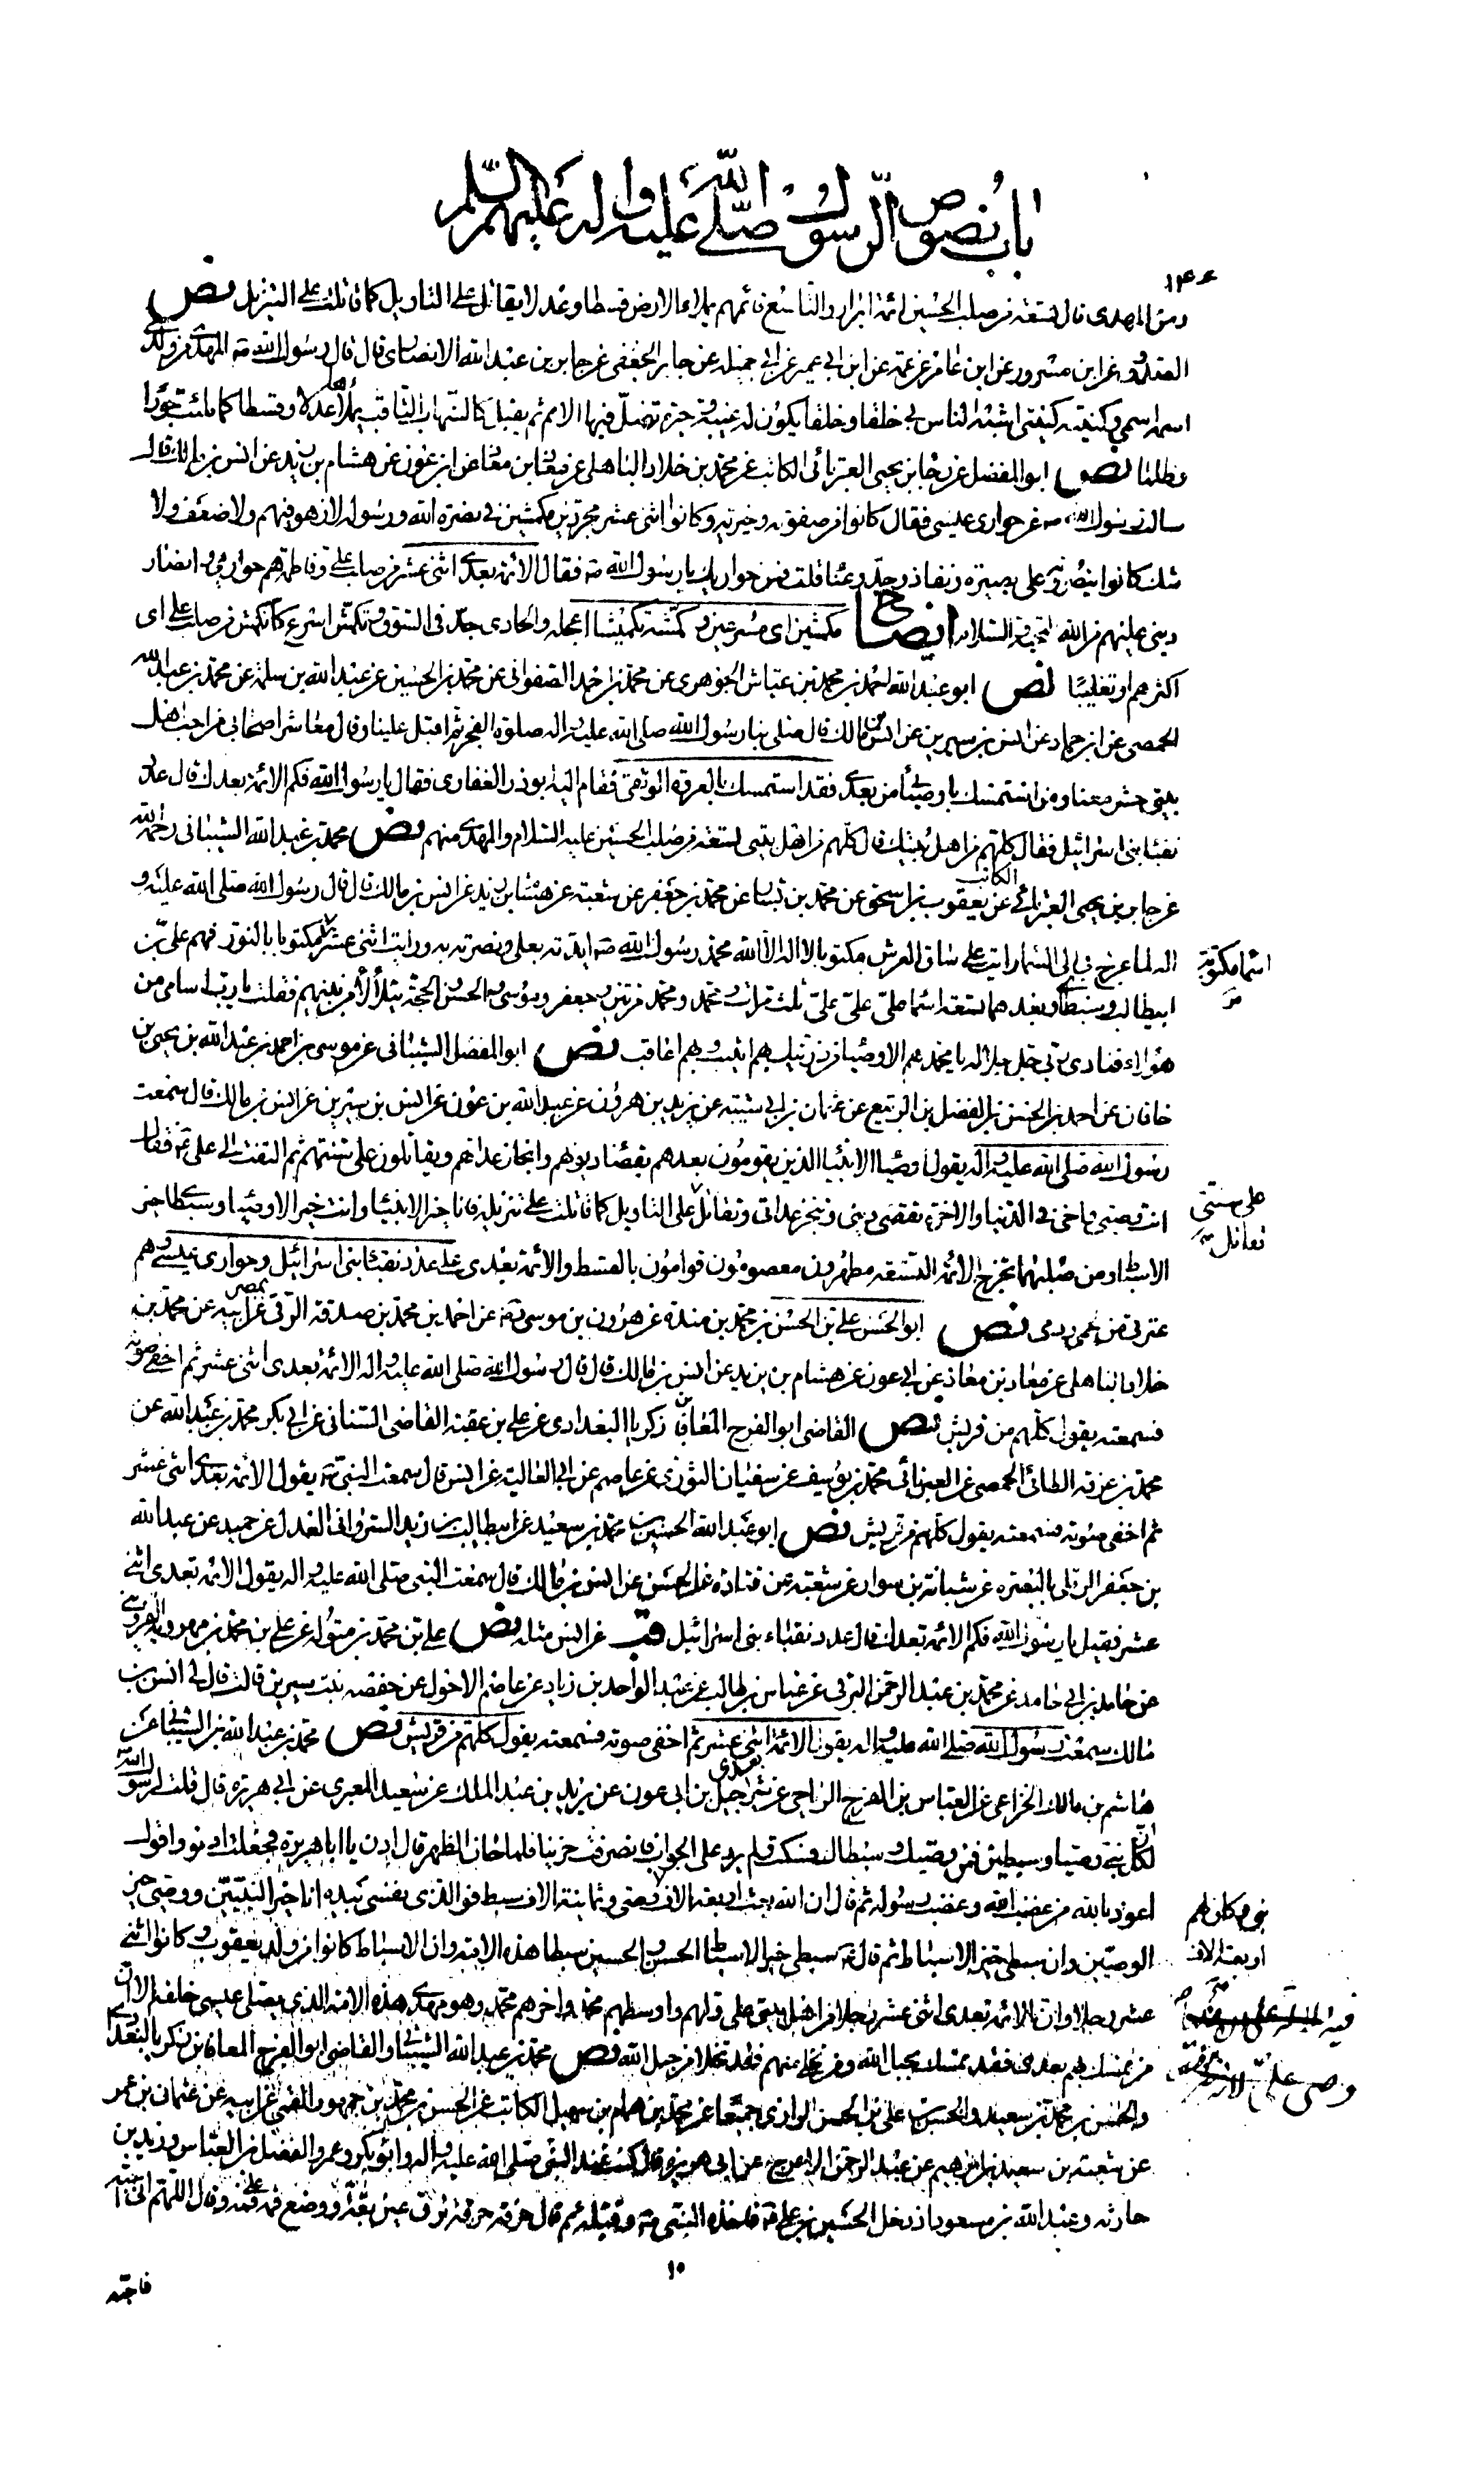 باب نصوص الرسول صلى الله عليه واله عليهم السلم
١٣٤
ومن المهدى قال تسعة من صلب الحسين ائمة ابرار والتاسع قائمهم يملاء الارض قسطا وعدلا يقاتل على التاويل كما قاتلت على التنزيل نص
الصدوق عن ابن مسرور عن ابن عامر عن عمه عن ابن ابي عمير عن ابي جميله عن جابر الجعفى عن جابر بن عبد الله الانصارى قال قال رسول الله صه المهدى من ولدى
اسمه اسمى وكنيته كنيتى اشبه الناس بى خلقا وخلقا يكون له غيبة وحيرة تضل فيها الامم ثم يقبل كالشهاب الثاقب يملاها عدلا وقسطا كما ملئت جورا
وظلما نص ابو المفضل عن رجا بن يحيى العبرتائى الكاتب عن محمد بن خلاد الباهلى عن معاذ بن معاذ عن ابن عون عن هشام بن زيد عن انس بن مالك قال
سالت رسول الله صه عن حوارى عيسى فقال كانوا من صفوته وخيرته وكانوا اثنى عشر مجردين مكمشين فى نصرة الله ورسوله لا زهو فيهم ولا ضعف ولا
شك كانوا ينصرونه على بصيرة ونفاذ وجد وعنا قلت فمن حواريك يا رسول الله صه فقال الائمة بعدى اثنى عشر من صلب على وفاطمة هم حوارى وانصار
دينى عليهم من الله التحية والسلام ايضاح مكمشين اى مسرعين و كمشته تكميشا اعجلته والحادى جد فى السوق وتكمش اسرع كانكمش من صلب على اى
اكثرهم او تغليبا نص ابو عبد الله احمد بن محمد بن عياش الجوهرى عن محمد بن احمد الصفوانى عن محمد بن الحسين عن عبد الله بن سلمة عن محمد بن عبد الله
الحمصى عن ابن حماد عن انس بن سيرين عن انس بن مالك قال صلى بنا رسول الله صلى الله عليه واله صلوة الفجر ثم اقبل علينا وقال معاشر اصحابى من احب اهل
بيتى حشر معنا ومن استمسك باوصيائى من بعدى فقد استمسك بالعروة الوثقى فقام اليه ابو ذر الغفارى فقال يا رسول الله فكم الائمة بعدك قال عدد
نقباء بنى اسرائيل فقال كلهم من اهل بيتك قال كلهم من اهل بيتى تسعة من صلب الحسين عليه السلام والمهدى منهم نص محمد بن عبد الله الشيبانى رحمه الله
عن رجا بن يحيى العبرتائى الكاتب عن يعقوب بن اسحق عن محمد بن بشار عن محمد بن جعفر عن شعبة عن هشام بن زيد عن انس بن مالك قال قال رسول الله صلى الله عليه و
اله لما عرج بى الى السماء رايت على ساق العرش مكتوبا لا اله الا الله محمد رسول الله صه ايدته بعلى ونصرته به ورايت اثنى عشر اسما مكتوبا بالنور فهم على بن
اسما مكتوبة
ابيطالب وسبطاى وبعدهما تسعة اسما على على على ثلث مرات ومحمد ومحمد مرتين و جعفر وموسى والحسن والحجة يتلألأ من بينهم فقلت يا رب اسامى من
هؤلاء فنادى ربى جل جلاله يا محمد هم الاوصياء من ذريتك بهم اثيب وبهم اعاقب نص ابو المفضل الشيبانى عن موسى بن احمد بن عبد الله بن يحيى بن
خاقان عن احمد بن الحسن بن الفضل بن الربيع عن عثمان بن ابي شيبة عن يزيد بن هرون عن عبد الله بن عون عن انس بن سيرين عن انس بن مالك قال سمعت
رسول الله صلى الله عليه واله يقول اوصيا الانبيا الذين يقومون بعدهم بقضا ديونهم وانجاز عداتهم ويقاتلون على سنتهم ثم التفت الى على ع فقال
انت وصيى واخى فى الدنيا والاخرة تقضى دينى وتنجز عداتى وتقاتل على التاويل كما قاتلت على تنزيله فانا خير الانبيا وانت خير الاوصيا وسبطاى خير
على سنتى
تقاتل
الاسباط ومن صلبهما تخرج الائمة التسعة مطهرون معصومون قوامون بالقسط والائمة بعدى على عدد نقبا بنى اسرائيل وحوارى عيسى هم
عترتى من لحمى ودمى نص ابو الحسن على بن الحسن بن محمد بن مندة عن هرون بن موسى عن احمد بن محمد بن صدقة الرقى بمصر عن ابيه عن محمد بن
خلاد الباهلى عن معاذ بن معاذ عن ابي عون عن هشام بن زيد عن انس بن مالك قال قال رسول الله صلى الله عليه واله الائمة بعدى اثنى عشر ثم اخفى صوته
فسمعته يقول كلهم من قريش نص القاضى ابو الفرج المعافا بن زكريا البغدادى عن على بن عقبة القاضى عن ابي بكر محمد بن عبد الله عن
محمد بن عرفة الطائى الحمصى عن الفريابى محمد بن يوسف عن سفيان الثورى عن عاصم عن ابي العالية عن انس قال سمعت النبى صه يقول الائمة بعدى اثنى عشر
ثم اخفى صوته فسمعته يقول كلهم من قريش نص ابو عبد الله الحسين بن محمد بن سعيد عن ابيطالب بن زيد العدل عن حميد عن عبد الله
بن جعفر الرملى بالبصرة عن شبابة بن سوار عن شعبة عن قتادة عن الحسن عن انس بن مالك قال سمعت النبى صلى الله عليه واله يقول الائمة بعدى اثنى
عشر فقيل يا رسول الله فكم الائمة بعدك قال عدد نقباء بنى اسرائيل قب عن انس مثله نص على بن محمد بن متوله عن على بن محمد بن مهرويه القزوينى
عن حامد بن ابي حامد عن محمد بن عبد الرحمن البرقى عن عباس بن طالب عن عبد الواحد بن زياد عن عاصم الاحول عن حفصة بنت سيرين قالت قال لى انس بن
مالك سمعت رسول الله صلى الله عليه واله يقول الائمة بعدى اثنى عشر ثم اخفى صوته فسمعته يقول كلهم من قريش نص محمد بن عبد الله الشيبانى عن
هاشم بن مالك الخزاعى عن العباس بن الفرج الرياحى عن شرحبيل بن ابي عون عن يزيد بن عبد الملك عن سعيد المقبرى عن ابي هريرة قال قلت لرسول الله
ان لكل نبى وصيا وسبطين فمن وصيك وسبطاك فسكت ولم يرد على الجواب فانصرفت حزينا فلما حان الظهر قال ادن يا ابا هريرة فجعلت ادنو واقول
اعوذ بالله من غضب الله وغضب رسوله ثم قال ان الله بعث اربعة الاف وصى وثمانية الاف سبط فوالذى نفسى بيده انا خير النبيين ووصيى خير
نبى وكان لهم
اربعة الاف
الوصيين وان سبطى خير الاسباط ثم قال ع سبطى خير الاسباط الحسن والحسين سبطا هذه الامة وان الاسباط كانوا من ولد يعقوب وكانوا اثنى
عشر رجلا وان الائمة بعدى اثنى عشر رجلا من اهل بيتى على اولهم واوسطهم محمد واخرهم محمد وهو مهدى هذه الامة الذى يصلى عيسى خلفه الا ان
من تمسك بهم بعدى فقد تمسك بحبل الله ومن تخلى منهم فقد تخلى من حبل الله نص محمد بن عبد الله الشيبانى والقاضى ابو الفرج المعافا بن زكريا البغدادى
والحسن بن محمد بن سعيد والحسين بن على بن الحسن الرازى جميعا عن محمد بن همام بن سهيل الكاتب عن الحسن بن محمد بن جمهور القمى عن ابيه عن عثمان بن عمر
عن شعبة بن سعيد بن ابراهيم عن عبد الرحمن الاعرج عن ابي هريرة قال كنت عند النبى صلى الله عليه واله وابو بكر وعمر والفضل بن العباس وزيد بن
حارثه وعبد الله بن مسعود اذ دخل الحسين بن على ع فاخذه النبى صه وقبله ثم قال حزقة حزقة ترق عين بقة ووضع فمه على فمه وقال اللهم انى احبه
١٠
فاحبه